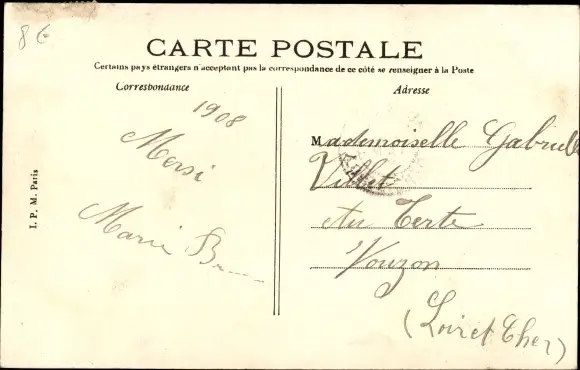 8€
CARTE POSTALE
Certains pays étrangers n'acceptant pas la correspondance de ce côté se renseigner à la Poste
Correspondance
Adresse
1908
Mersi
Marie B
I. P. M. Paris
Mademoiselle Gabrielle
Villet
Au Tertre
Vouzon
(Loir et Cher)